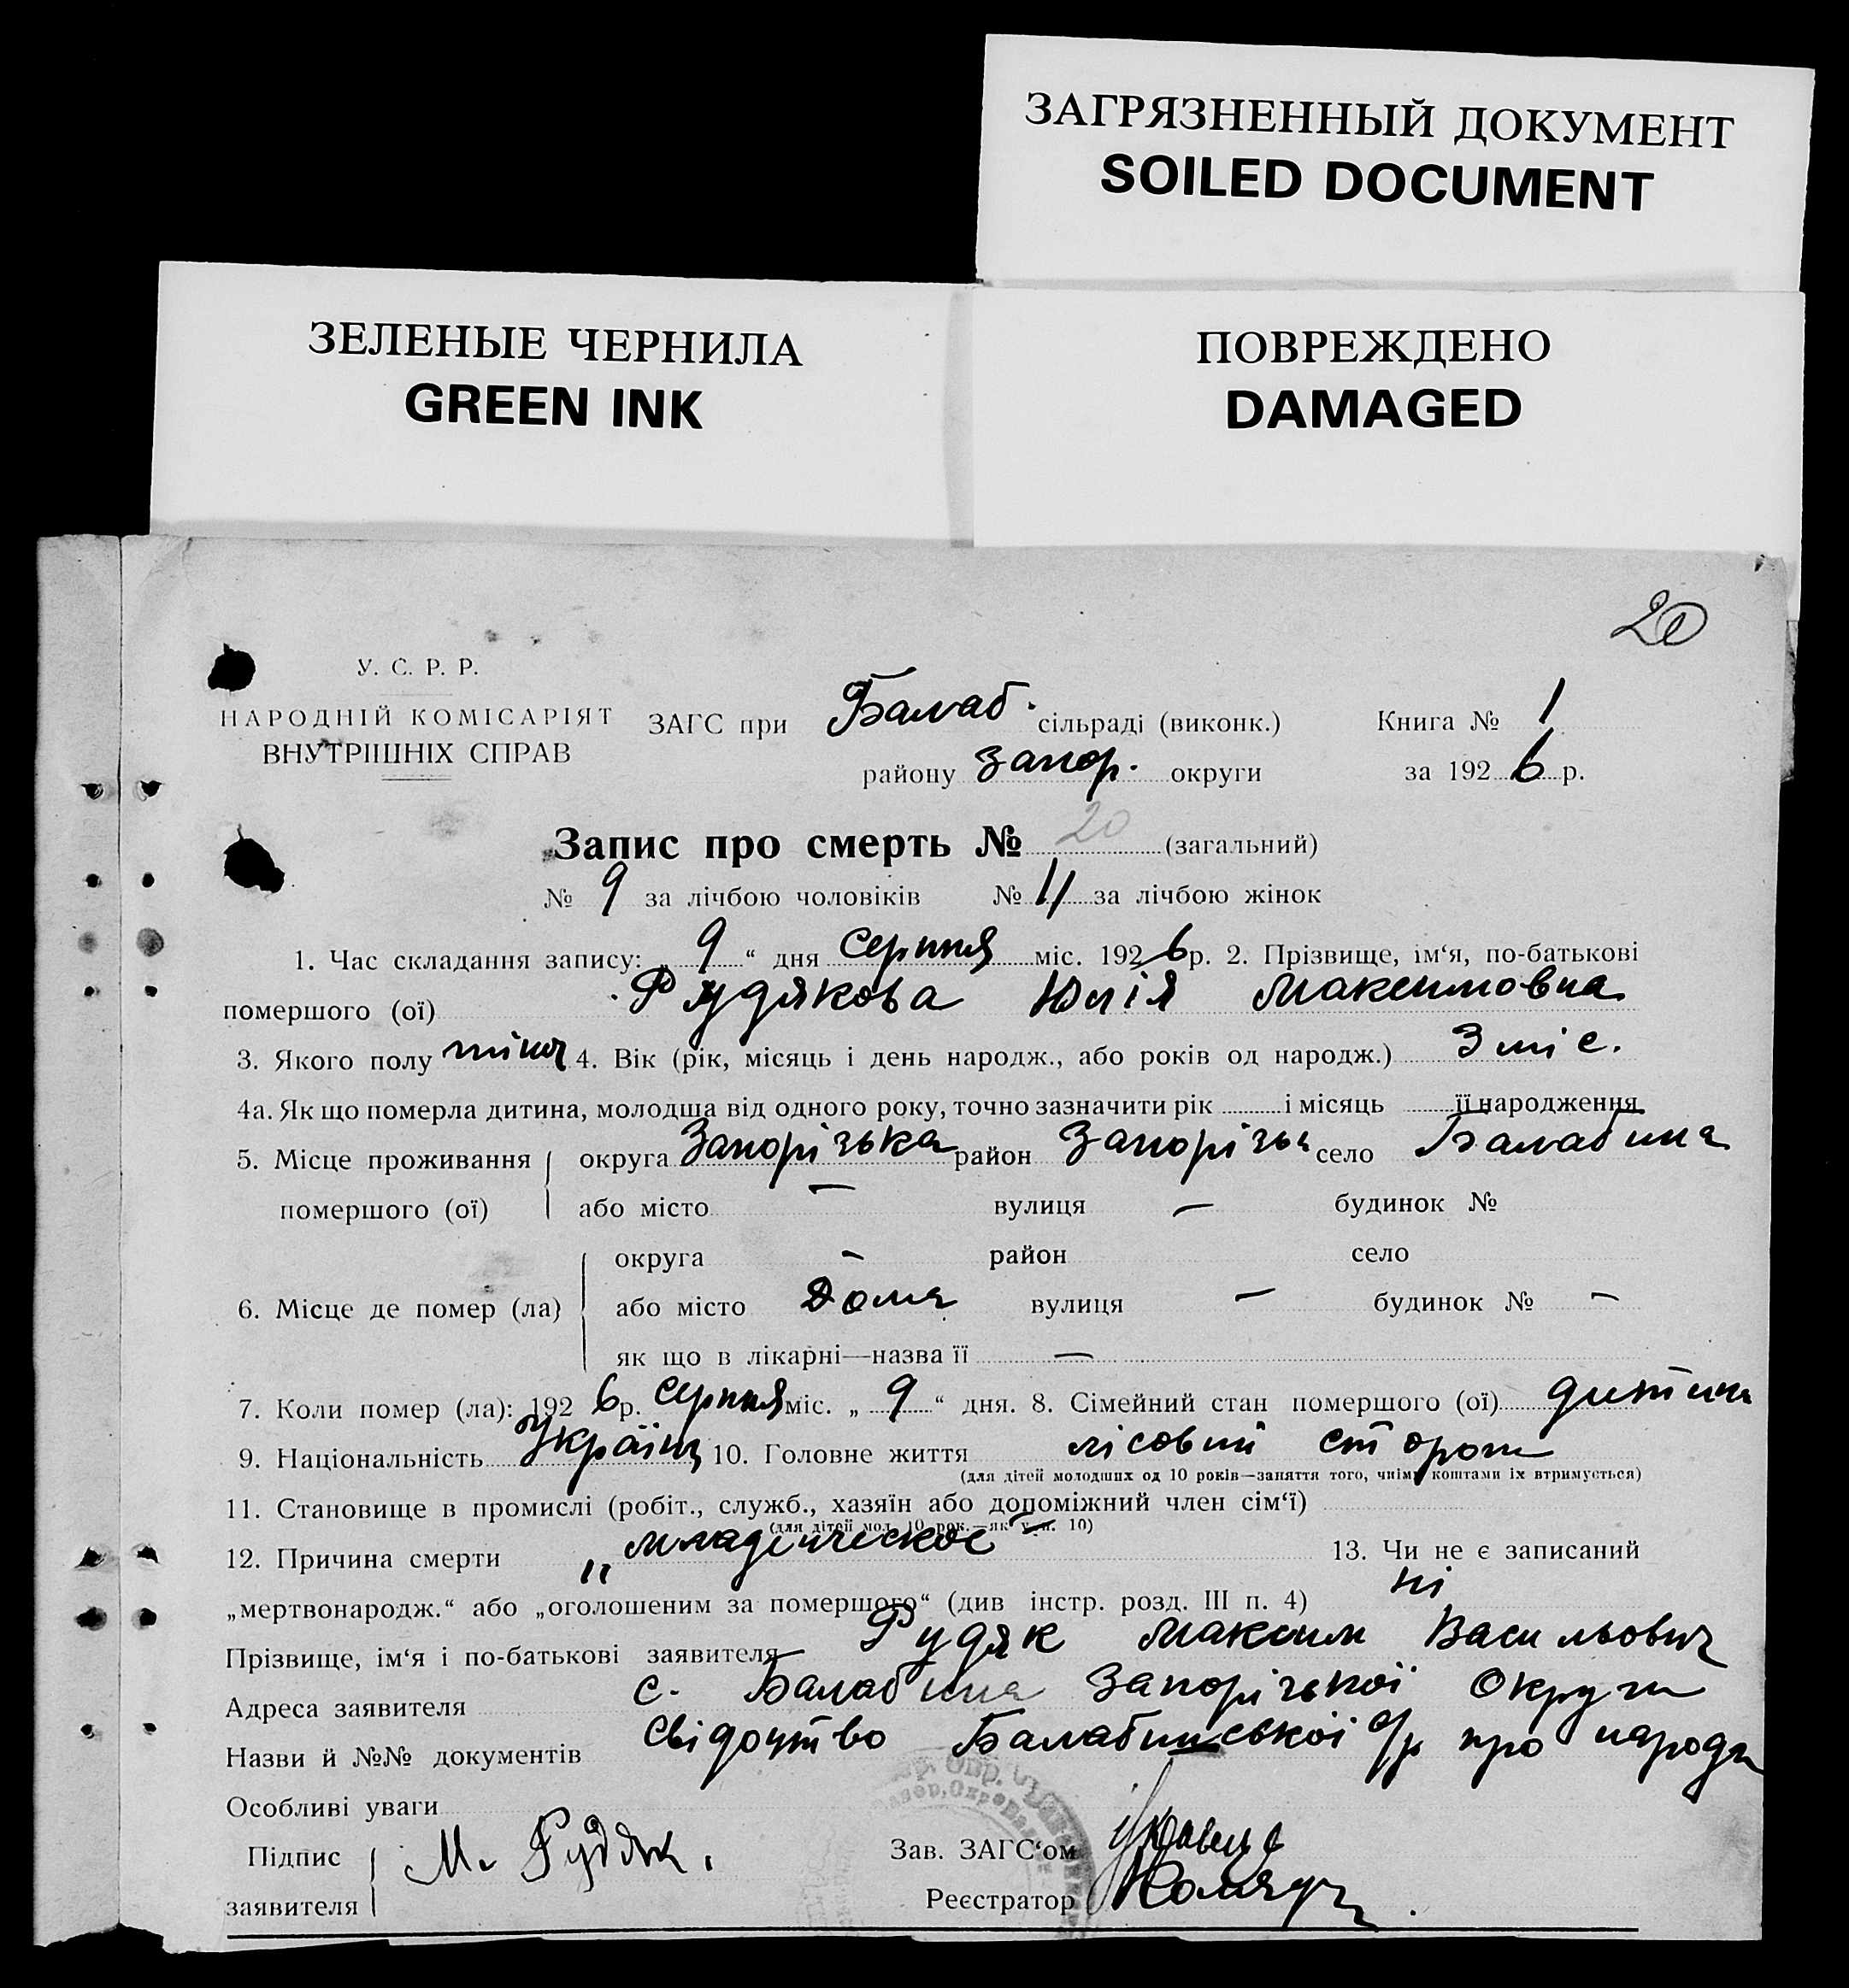 ЗАГРЯЗНЕННЫЙ ДОКУМЕНТ
SOILED DOCUMENT
ЗЕЛЕНЫЕ ЧЕРНИЛА
GREEN INK
ПОВРЕЖДЕНО
DAMAGED
20
У. С. Р. Р.
НАРОДНІЙ КОМІСАРІЯТ
ВНУТРІШНІХ СПРАВ
ЗАГС при Балаб. сільраді (виконк.) Книга № 1
району Запор. округи за 1926 р.
Запис про смерть № 20 (загальний)
№ 9 за лічбою чоловіків № 11 за лічбою жінок
1. Час складання запису: „ 9 “ дня серпня міс. 1926 р. 2. Прізвище, ім‘я, по-батькові
помершого (ої) Рудякова Юлія Максимовна
3. Якого полу жіноч 4. Вік (рік, місяць і день народж., або років од народж.) 3 міс.
4а. Як що померла дитина, молодша від одного року, точно зазначити рік і місяць її народження
5. Місце проживання округа Запорізька район Запорізьк село Балабина
помершого (ої) або місто — вулиця — будинок №
округа — район село
6. Місце де помер (ла) або місто Дома вулиця — будинок № —
як що в лікарні—назва її —
7. Коли помер (ла): 1926 р. серпня міс. „ 9 “ дня. 8. Сімейний стан помершого (ої) дитина
9. Національність Україн 10. Головне життя лісовий сторож
(для дітей молодших од 10 років—заняття того, чиїми коштами їх втримується)
11. Становище в промислі (робіт., служб., хазяїн або допоміжний член сім‘ї)
(для дітей мол. 10 рок.—як у п. 10)
12. Причина смерти „младенческое“ 13. Чи не є записаний
„мертвонародж.“ або „оголошеним за помершого“ (див інстр. розд. III п. 4) ні
Прізвище, ім‘я і по-батькові заявителя Рудяк Максим Васильович
Адреса заявителя с. Балабина Запорізької Округи
Назви й №№ документів Свідоцтво Балабинської с/р про народж
Особливі уваги
Підпис М. Рудяк. Зав. ЗАГС‘ом
заявителя Реєстратор